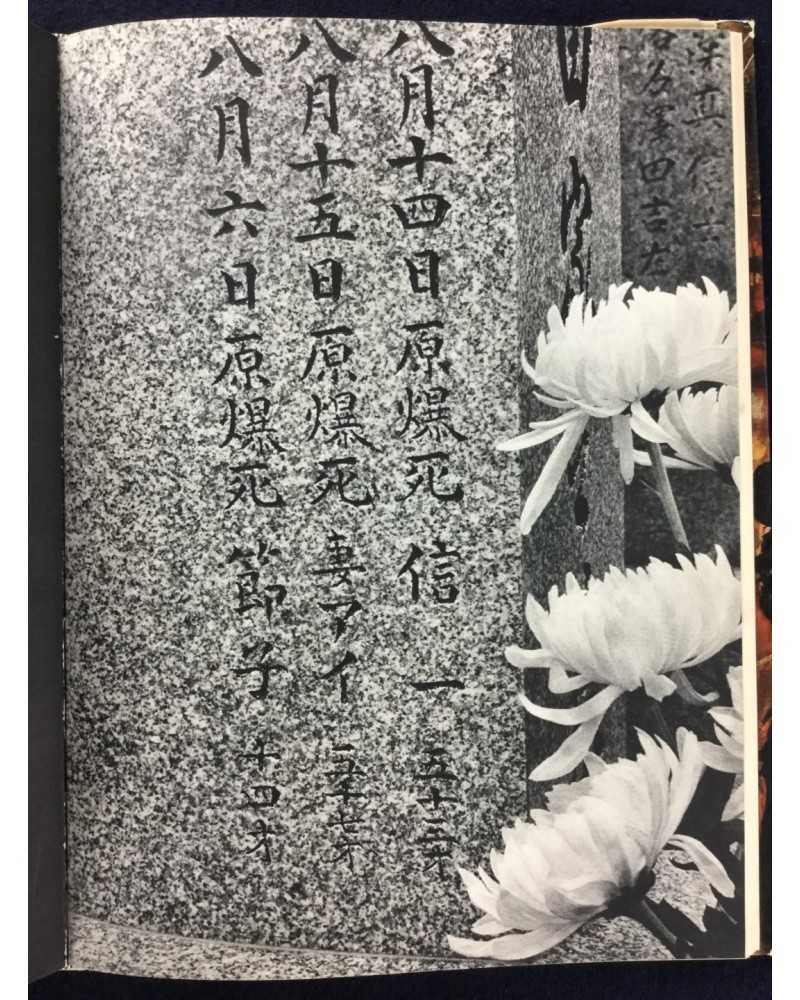 染真信士
名多澤田吉左
八月十四日原爆死 信 一 五十三才
八月十五日原爆死 妻アイ 五十七才
八月六日原爆死 節子 十四才